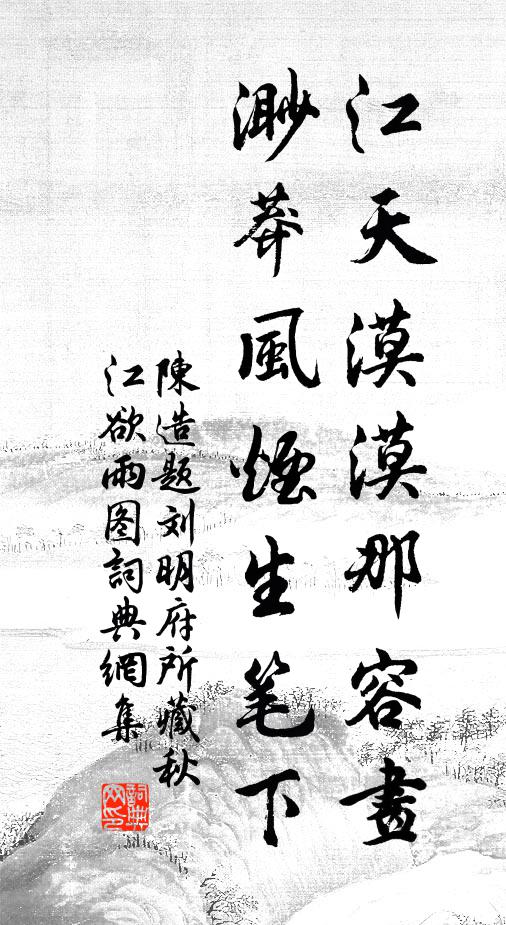 江天漠漠那容畫
渺莽風煙生笔下
陳造题刘明府所藏秋
江欲雨图詞典網集